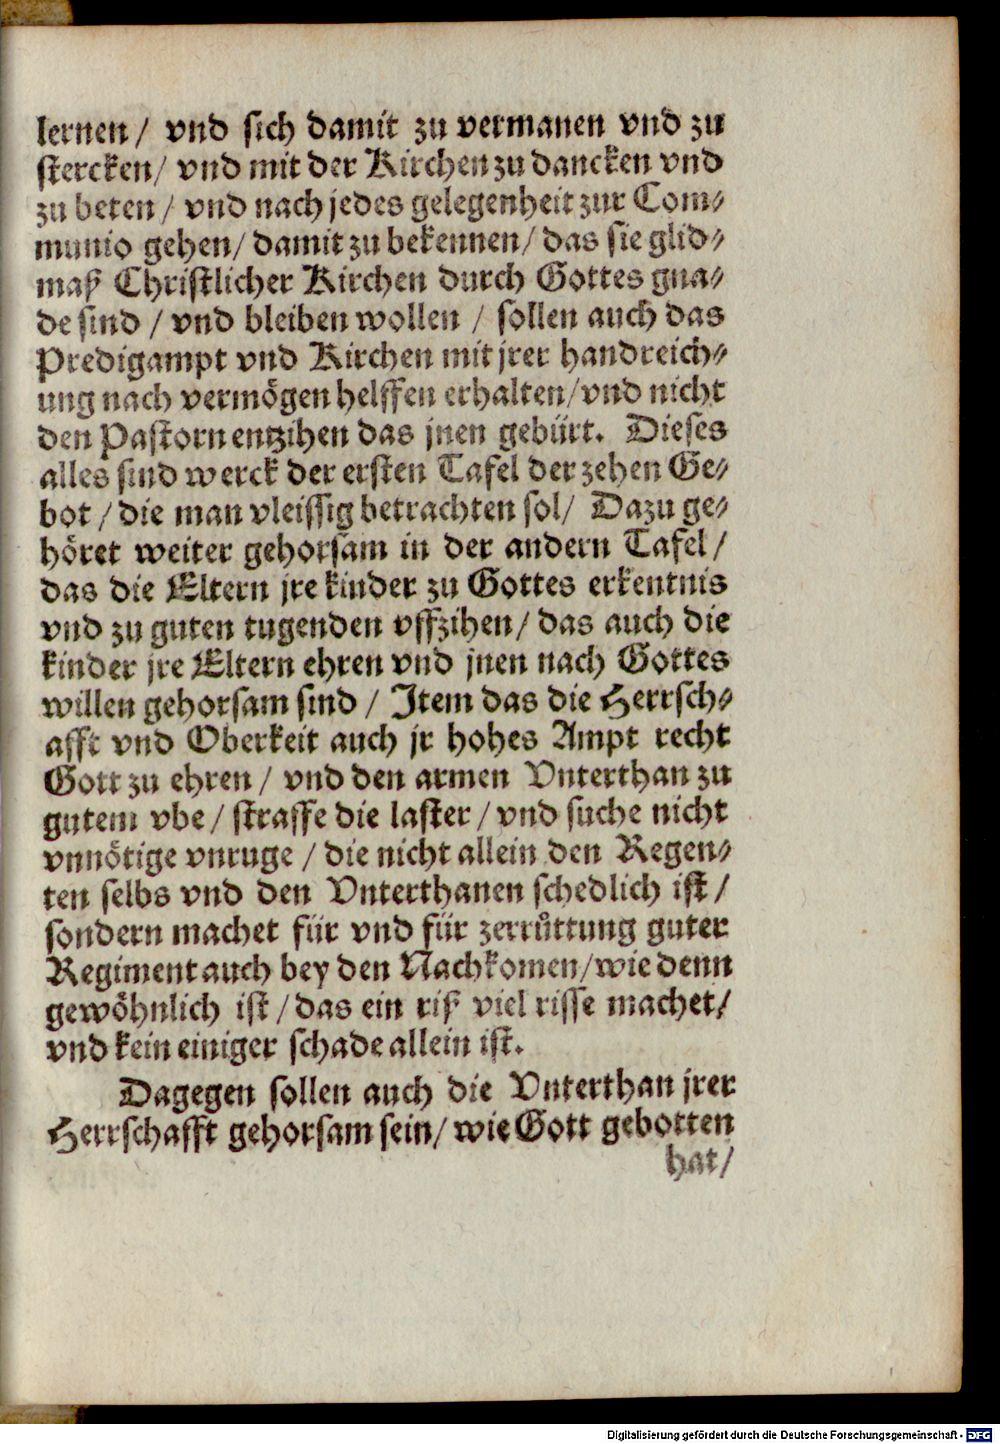 lernen/ vnd sich damit zu vermanen vnd zu
stercken/ vnd mit der Kirchen zu dancken vnd
zu beten/ vnd nach jedes gelegenheit zur Com⸗
munio gehen/ damit zu bekennen/ das sie glid⸗
maß Christlicher Kirchen durch Gottes gna⸗
de sind / vnd bleiben wollen / sollen auch das
Predigampt vnd Kirchen mit jrer handreich⸗
ung nach vermögen helffen erhalten/ vnd nicht
den Pastorn entzihen das jnen gebürt. Dieses
alles sind werck der ersten Tafel der zehen Ge⸗
bot / die man vleissig betrachten sol/ Dazu ge⸗
höret weiter gehorsam in der andern Tafel/
das die Eltern jre kinder zu Gottes erkentnis
vnd zu guten tugenden vffzihen/ das auch die
kinder jre Eltern ehren vnd jnen nach Gottes
willen gehorsam sind / Item das die Herrsch⸗
afft vnd Oberkeit auch jr hohes Ampt recht
Gott zu ehren / vnd den armen Vnterthan zu
gutem vbe / straffe die laster / vnd suche nicht
vnnötige vnruge / die nicht allein den Regen⸗
ten selbs vnd den Vnterthanen schedlich ist/
sondern machet für vnd für zerrůttung guter
Regiment auch bey den Nachkomen/ wie denn
gewöhnlich ist / das ein riß viel risse machet/
vnd kein einiger schade allein ist.
Dagegen sollen auch die Vnterthan jrer
Herrschafft gehorsam sein/ wie Gott gebotten
hat/
Digitalisierung gefördert durch die Deutsche Forschungsgemeinschaft - DFG